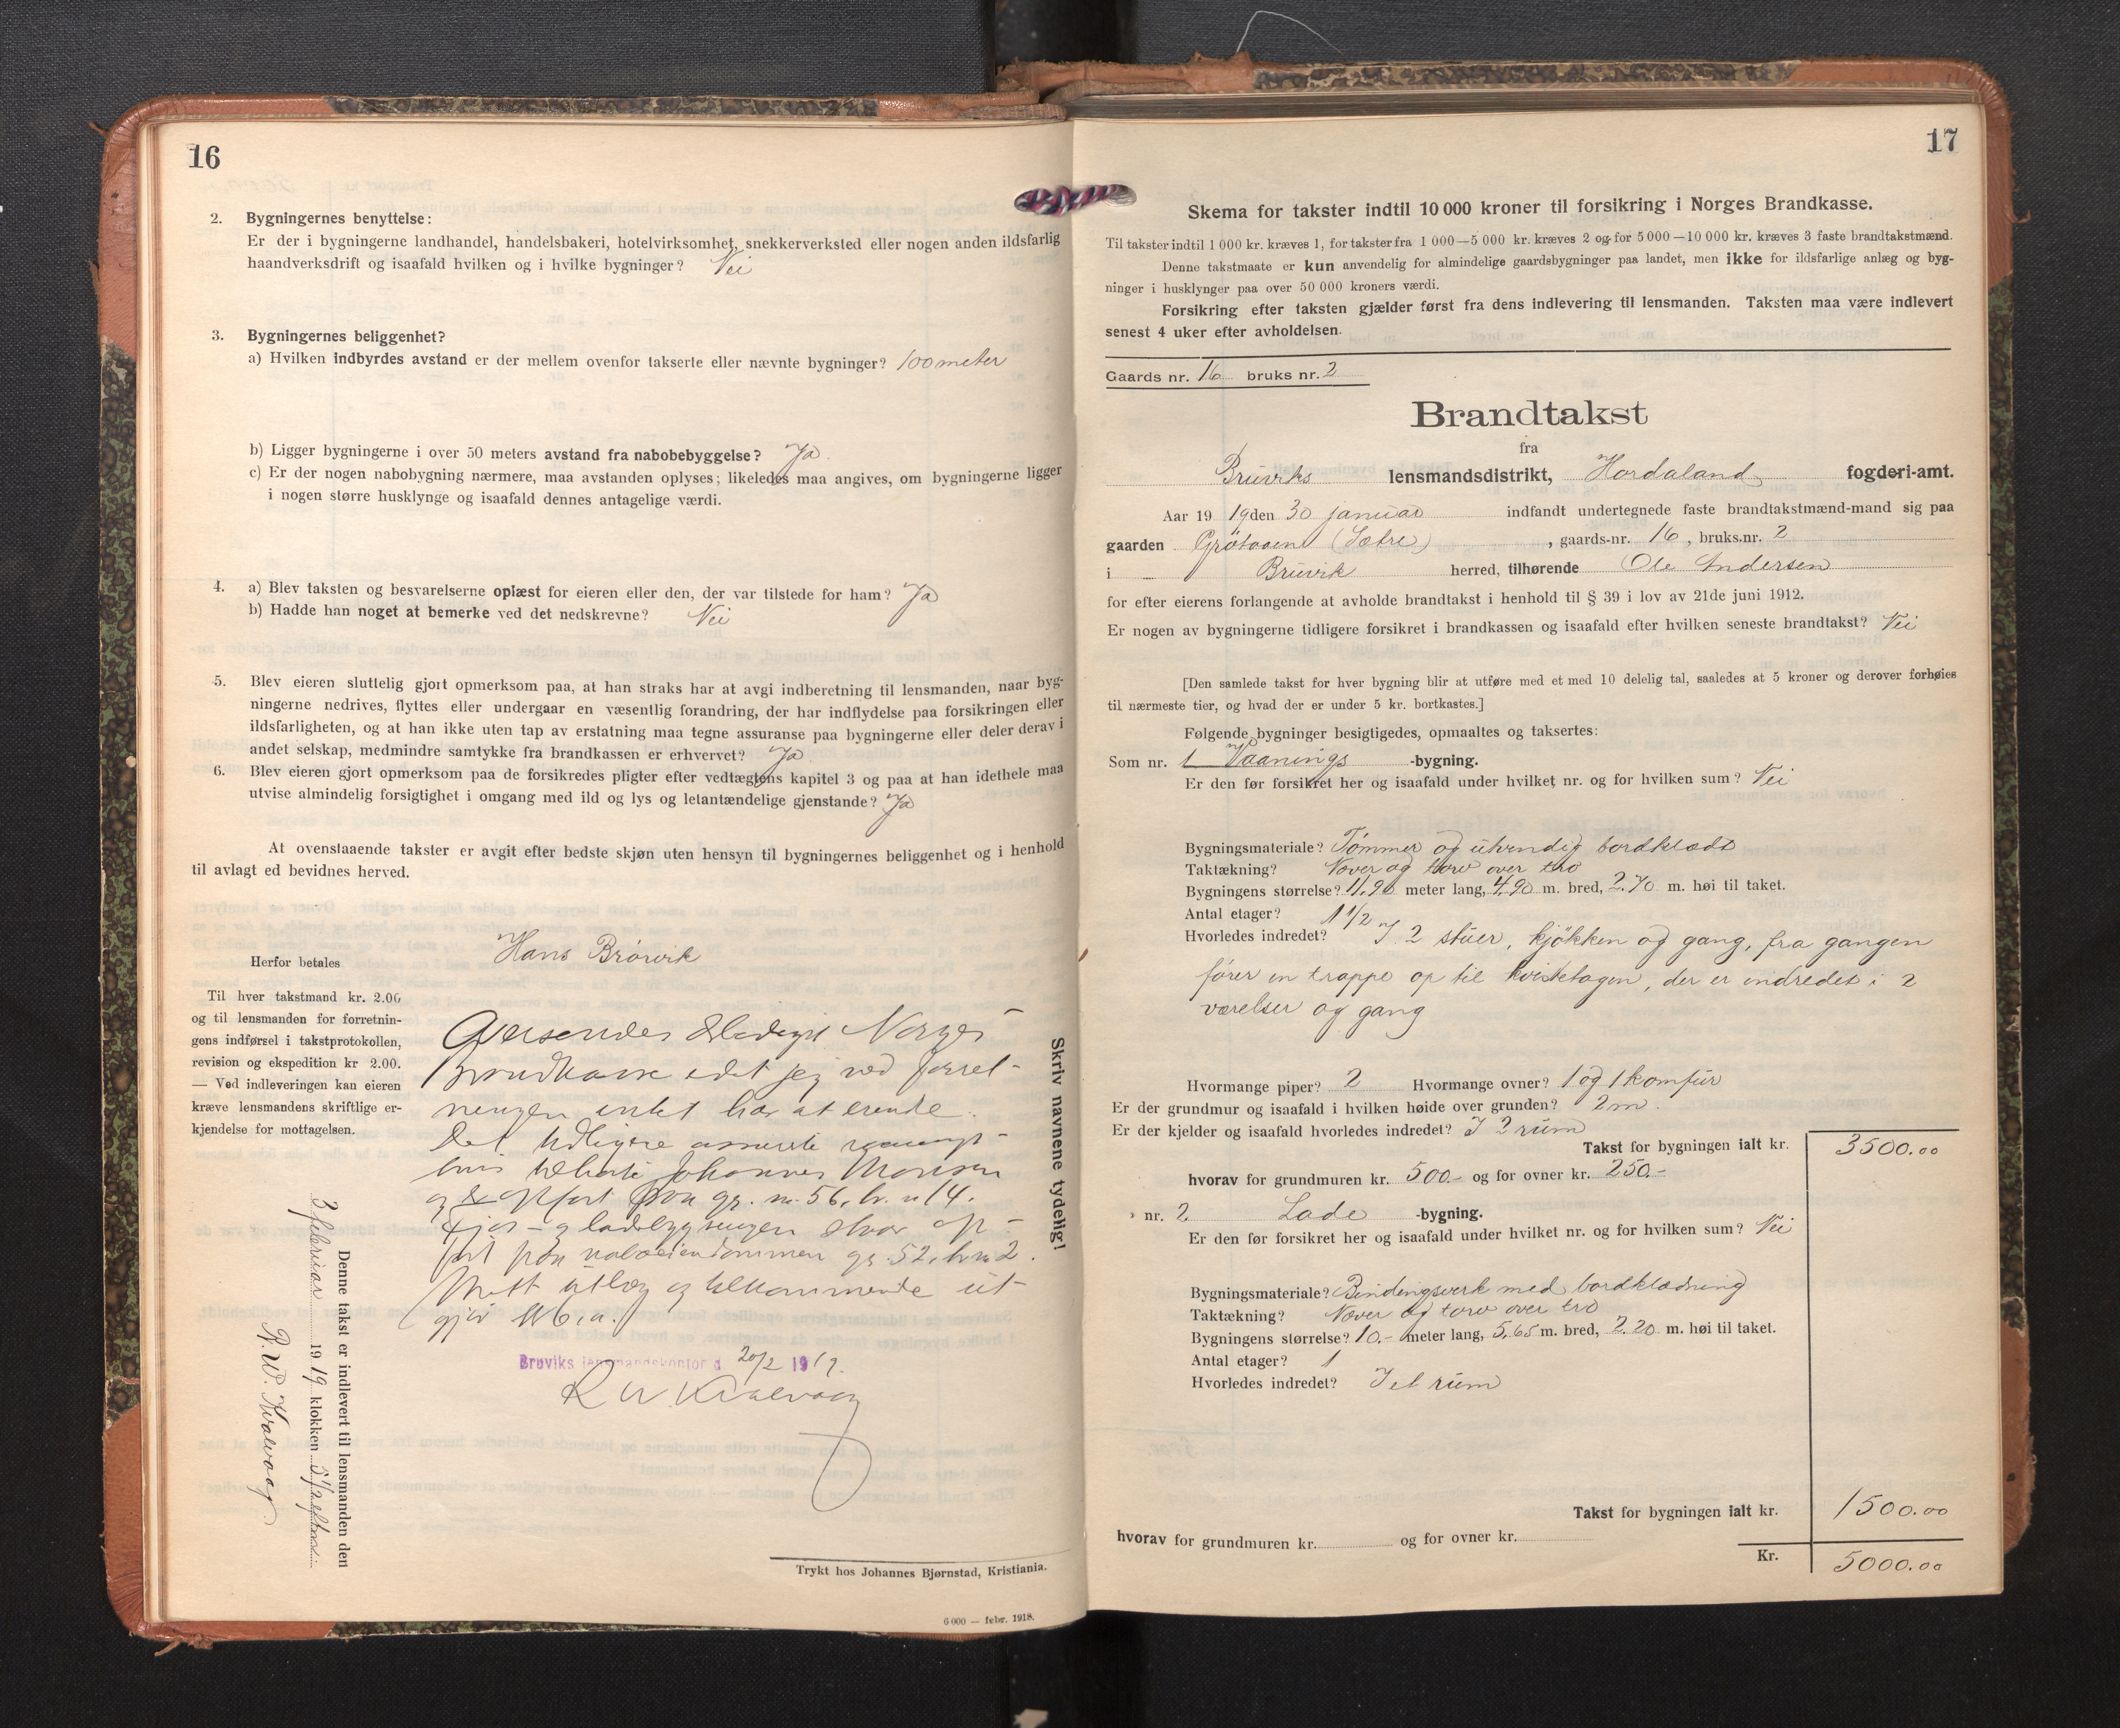 16
2. Bygningernes benyttelse:
Er der i bygningerne landhandel, handelsbakeri, hotelvirksomhet, snekkerverksted eller nogen anden ildsfarlig
haandverksdrift og isaafald hvilken og i hvilke bygninger? Nei
3. Bygningernes beliggenhet?
a) Hvilken indbyrdes avstand er der mellem ovenfor takserte eller nævnte bygninger? 100 meter
b) Ligger bygningerne i over 50 meters avstand fra nabobebyggelse? Ja.
c) Er der nogen nabobygning nærmere, maa avstanden oplyses; likeledes maa angives, om bygningerne ligger
i nogen større husklynge og isaafald dennes antagelige værdi.
4. a) Blev taksten og besvarelserne oplæst for eieren eller den, der var tilstede for ham? Ja
b) Hadde han noget at bemerke ved det nedskrevne? Nei
5. Blev eieren sluttelig gjort opmerksom paa, at han straks har at avgi indberetning til lensmanden, naar byg-
ningerne nedrives, flyttes eller undergaar en væsentlig forandring, der har indflydelse paa forsikringen eller
ildsfarligheten, og at han ikke uten tap av erstatning maa tegne assuranse paa bygningerne eller deler derav i
andet selskap, medmindre samtykke fra brandkassen er erhvervet? Ja
6. Blev eieren gjort opmerksom paa de forsikredes pligter efter vedtægtens kapitel 3 og paa at han idethele maa
utvise almindelig forsigtighet i omgang med ild og lys og letantændelige gjenstande? Ja
At ovenstaaende takster er avgit efter bedste skjøn uten hensyn til bygningernes beliggenhet og i henhold
til avlagt ed bevidnes herved.
Hans Brørvik
Herfor betales
Til hver takstmand kr. 2.00
og til lensmanden for forretnin-
gens indførsel i takstprotokollen,
revision og ekspedition kr 2.00.
— Ved indleveringen kan eieren
kræve lensmandens skriftlige er-
kjendelse for mottagelsen.
Oversendes Norges
Brandkasse idet jeg ved forret-
ningen intet har at erindre.
Det tidligere
hus Johannes Monsen
og er opført paa gr. nr. 56, br. n 14.
Fjøs- og ladebygningen staar op-
ført paa naboeiendommen gr. 52, br. nr 2.
Mott utlæg og tilkommende ut-
gjør
Bruviks lensmandskontor d. 20/2 1919.
R W. Kvalvaag
Skriv navnene tydelig!
Denne takst er indlevert til lensmanden den
3 februar 1919 klokken 5 1/2
R. W. Kvalvaag.
Trykt hos Johannes Bjørnstad, Kristiania.
6 000 — febr. 1918.
17
Skema for takster indtil 10 000 kroner til forsikring i Norges Brandkasse.
Til takster indtil 1 000 kr. kræves 1, for takster fra 1 000—5 000 kr. kræves 2 og for 5 000—10 000 kr. kræves 3 faste brandtakstmænd.
Denne takstmaate er kun anvendelig for almindelige gaardsbygninger paa landet, men ikke for ildsfarlige anlæg og byg-
ninger i husklynger paa over 50 000 kroners værdi.
Forsikring efter taksten gjælder først fra dens indlevering til lensmanden. Taksten maa være indlevert
senest 4 uker efter avholdelsen.
Gaards nr. 16 bruks nr. 2
Brandtakst
fra
Bruviks lensmandsdistrikt, Hordaland fogderi-amt.
Aar 1919 den 30 januar indfandt undertegnede faste brandtakstmænd-mand sig paa
gaarden Grøtaaen (Sætre), gaards-nr. 16, bruks.nr. 2
i Bruvik herred, tilhørende Ole Andersen
for efter eierens forlangende at avholde brandtakst i henhold til § 39 i lov av 21de juni 1912.
Er nogen av bygningerne tidligere forsikret i brandkassen og isaafald efter hvilken seneste brandtakst? Nei
[Den samlede takst for hver bygning blir at utføre med et med 10 delelig tal, saaledes at 5 kroner og derover forhøies
til nærmeste tier, og hvad der er under 5 kr. bortkastes.]
Følgende bygninger besigtigedes, opmaaltes og taksertes:
Som nr. 1 Vaanings -bygning.
Er den før forsikret her og isaafald under hvilket nr. og for hvilken sum? Nei
Bygningsmateriale? Tømmer og utvendig bordklædt
Taktækning? Næver og torv over tro
Bygningens størrelse? 11.90 meter lang, 4.90 m. bred, 2.70 m. høi til taket.
Antal etager? 1 1/2
Hvorledes indredet? I 2 stuer, kjøkken og gang, fra gangen
fører en trappe op til kvistetagen, der er indredet i 2
værelser og gang
Hvormange piper? 2 Hvormange ovner? 1 og 1 komfur
Er der grundmur og isaafald i hvilken høide over grunden? 2 m.
Er der kjelder og isaafald hvorledes indredet? I 2 rum
Takst for bygningen ialt kr. 3500.00
hvorav for grundmuren kr. 500.- og for ovner kr. 250.-
nr. 2. Lade -bygning.
Er den før forsikret her og isaafald under hvilket nr. og for hvilken sum? Nei
Bygningsmateriale? Bindingsverk med bordklædning
Taktækning? Næver og torv over tro
Bygningens størrelse? 10.- meter lang, 5.65 m. bred, 2.20 m. høi til taket.
Antal etager? 1
Hvorledes indredet? I et rum
Takst for bygningen ialt kr. 1500.00
hvorav for grundmuren kr. og for ovner kr.
Kr. 5000.00